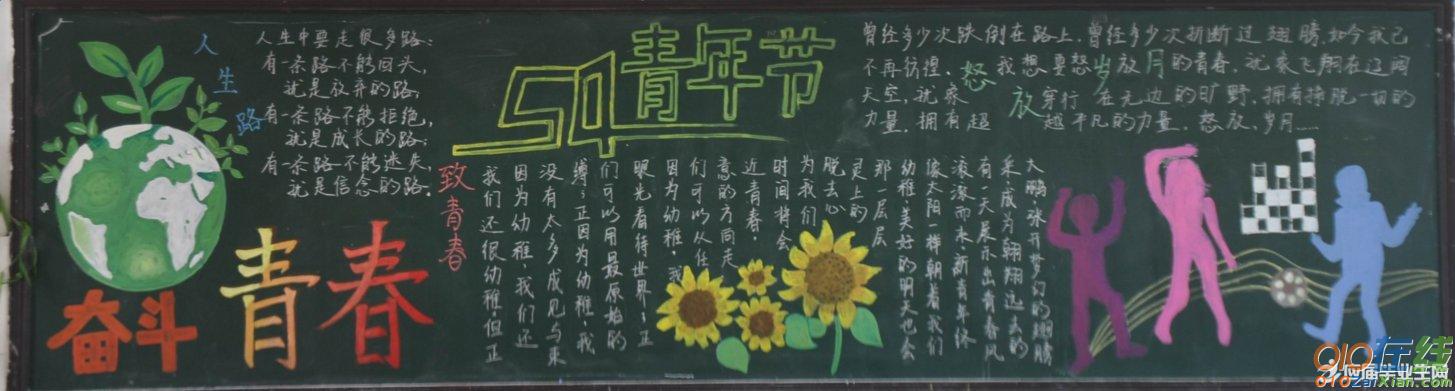 人生路
人生中要走很多路:
有一条路不能回头,
就是放弃的路;
有一条路不能拒绝,
就是成长的路;
有一条路不能迷失,
就是信念的路。
奋斗
青春
54青年节
致青春
我们还很幼稚,但正
因为幼稚,我们还
没有太多成见与束
缚;正因为幼稚,我
们可以用最原始的
眼光看待世界;正
因为幼稚,我
们可以从任
意的方向走
近青春,
时间将会
为我们
脱去心
灵上的
那一层层
幼稚,美好的明天也会
像太阳一样朝着我们
滚滚而来,新青年终
有一天展示出青春风
采,成为翱翔远去的
大鹏,张开梦幻的翅膀
曾经多少次跌倒在路上,曾经多少次折断过翅膀,如今我已
不再彷徨,我想要怒放的青春,就象飞翔在辽阔
天空,就象穿行在无边的旷野,拥有挣脱一切的
力量,拥有超越平凡的力量,怒放,岁月……
怒放岁月
010在线
应届毕业生网
010zaixian.com